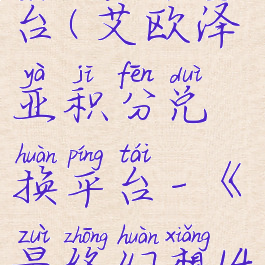 台（艾欧泽
yà jī fēn duì
亚积分兑
huàn píng tái
换平台-《
zuì zhōng huàn xiǎng
最终幻想14